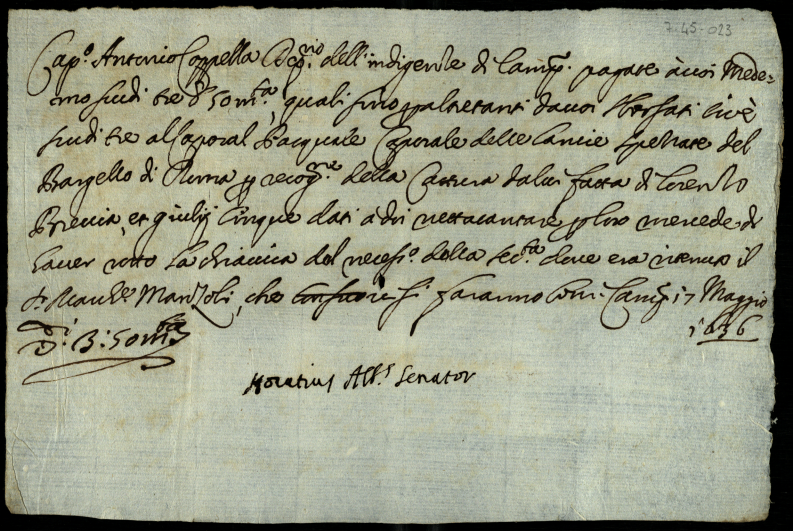 7-45-023
Cap.º Antonio Coppella Dep.rio dell'indigente di Camp.º pagate à voi Mede=
mo scudi tre b 50 m.ta, quali sono p altretanti da voi sborsati cioè
scudi tre al Caporal Pasquale Caporale delle lancie spezzate del
Bargello di Roma p recog.ne della Cattura da lui fatta di Lorenzo
Breccia, et giulij cinque dati a doi nettacantare p loro mercede di
haver voto la chiavica del necess.º della seg.ta dove era ritenuto il
d. Marc' Marzoli, che si faranno boni. Camp.º 17 Maggio
1636
D.i 3 : 50 m.ta
Horatius Alb.s Senator